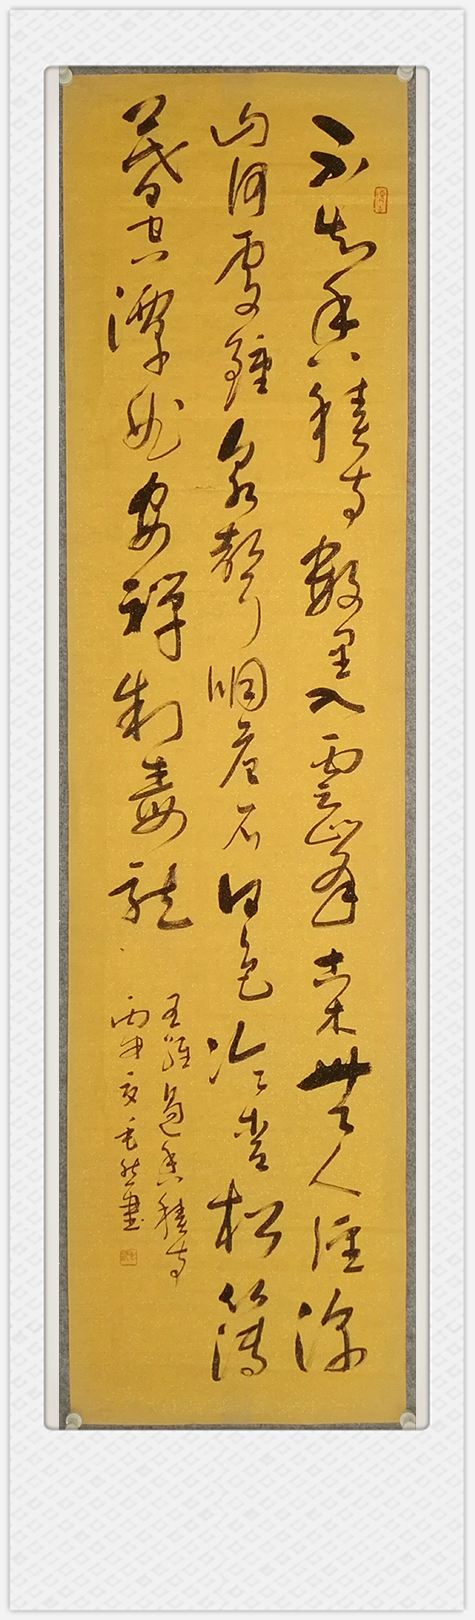 不知香積寺數里入雲峰古木無人徑深
山何處鍾泉聲咽危石日色冷青松薄
暮空潭曲安禪制毒龍
王維過香積寺
丙申夏毛書